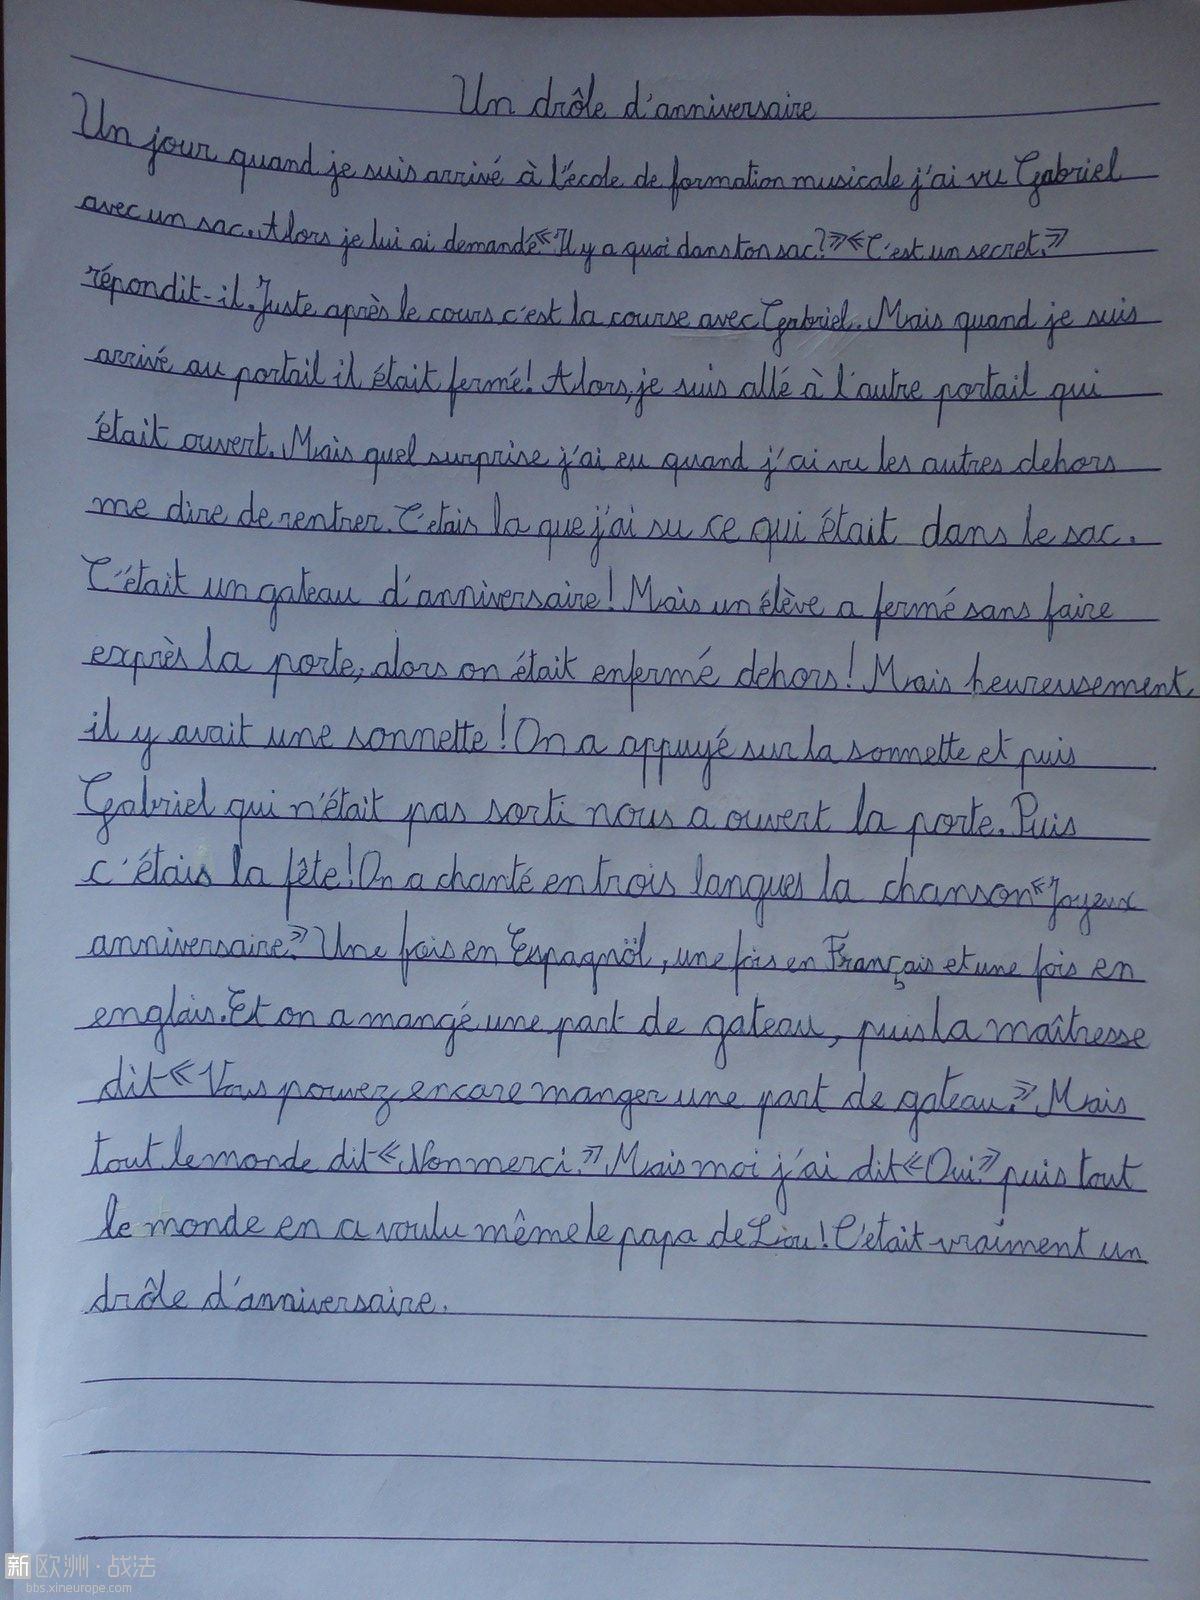 Un drôle d'anniversaire
Un jour quand je suis arrivé à l'école de formation musicale j'ai vu Gabriel
avec un sac. Alors je lui ai demandé « Il y a quoi dans ton sac ? » « C'est un secret. »
répondit-il. Juste après le cours c'est la course avec Gabriel. Mais quand je suis
arrivé au portail il était fermé ! Alors, je suis allé à l'autre portail qui
était ouvert. Mais quel surprise j'ai eu quand j'ai vu les autres dehors
me dire de rentrer. C'etais la que j'ai su ce qui était dans le sac.
C'était un gateau d'anniversaire ! Mais un élève a fermé sans faire
exprès la porte, alors on était enfermé dehors ! Mais heureusement
il y avait une sonnette ! On a appuyé sur la sonnette et puis
Gabriel qui n'était pas sorti nous a ouvert la porte. Puis
c'étais la fête ! On a chanté en trois langues la chanson « Joyeux
anniversaire. » Une fois en Espagnöl, une fois en Français et une fois en
englais. Et on a mangé une part de gateau, puis la maîtresse
dit « Vous pouvez encore manger une part de gateau. » Mais
tout le monde dit « Non merci. » Mais moi j'ai dit « Oui. » puis tout
le monde en a voulu même le papa de Liou ! C'etait vraiment un
drôle d'anniversaire.
新欧洲·战法
bbs.xineurope.com